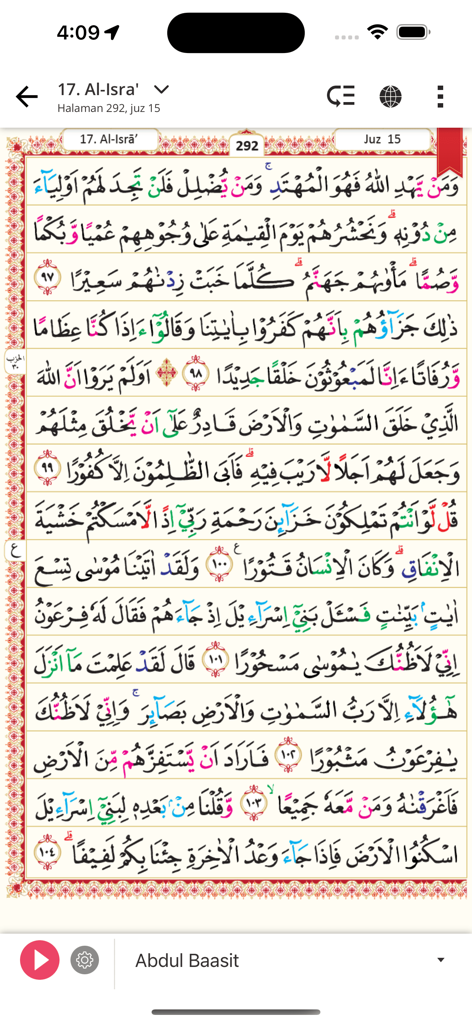 4:09
17. Al-Isra'
Halaman 292, juz 15
17. Al-Isrā’
292
Juz 15
وَمَنْ يَّهْدِ اللّٰهُ فَهُوَ الْمُهْتَدِۚ وَمَنْ يُّضْلِلْ فَلَنْ تَجِدَ لَهُمْ اَوْلِيَاۤءَ
مِنْ دُوْنِهٖۗ وَنَحْشُرُهُمْ يَوْمَ الْقِيٰمَةِ عَلٰى وُجُوْهِهِمْ عُمْيًا وَّبُكْمًا
وَّصُمًّاۗ مَأْوٰىهُمْ جَهَنَّمُۗ كُلَّمَا خَبَتْ زِدْنٰهُمْ سَعِيْرًا ٩٧
ذٰلِكَ جَزَاۤؤُهُمْ بِاَنَّهُمْ كَفَرُوْا بِاٰيٰتِنَا وَقَالُوْٓا ءَاِذَا كُنَّا عِظَامًا
وَّرُفَاتًا ءَاِنَّا لَمَبْعُوْثُوْنَ خَلْقًا جَدِيْدًا ٩٨ اَوَلَمْ يَرَوْا اَنَّ اللّٰهَ
الحزب ٣٠
الَّذِيْ خَلَقَ السَّمٰوٰتِ وَالْاَرْضَ قَادِرٌ عَلٰٓى اَنْ يَّخْلُقَ مِثْلَهُمْ
وَجَعَلَ لَهُمْ اَجَلًا لَّا رَيْبَ فِيْهِۗ فَاَبَى الظّٰلِمُوْنَ اِلَّا كُفُوْرًا ٩٩
قُلْ لَّوْ اَنْتُمْ تَمْلِكُوْنَ خَزَاۤىِٕنَ رَحْمَةِ رَبِّيْٓ اِذًا لَّاَمْسَكْتُمْ خَشْيَةَ
الْاِنْفَاقِۗ وَكَانَ الْاِنْسَانُ قَتُوْرًا ࣖ ١٠٠ وَلَقَدْ اٰتَيْنَا مُوْسٰى تِسْعَ
ع
اٰيٰتٍۢ بَيِّنٰتٍ فَسْـَٔلْ بَنِيْٓ اِسْرَاۤءِيْلَ اِذْ جَاۤءَهُمْ فَقَالَ لَهٗ فِرْعَوْنُ
اِنِّيْ لَاَظُنُّكَ يٰمُوْسٰى مَسْحُوْرًا ١٠١ قَالَ لَقَدْ عَلِمْتَ مَآ اَنْزَلَ
هٰٓؤُلَاۤءِ اِلَّا رَبُّ السَّمٰوٰتِ وَالْاَرْضِ بَصَاۤىِٕرَۚ وَاِنِّيْ لَاَظُنُّكَ
يٰفِرْعَوْنُ مَثْبُوْرًا ١٠٢ فَاَرَادَ اَنْ يَّسْتَفِزَّهُمْ مِّنَ الْاَرْضِ
فَاَغْرَقْنٰهُ وَمَنْ مَّعَهٗ جَمِيْعًاۙ ١٠٣ وَّقُلْنَا مِنْۢ بَعْدِهٖ لِبَنِيْٓ اِسْرَاۤءِيْلَ
اسْكُنُوا الْاَرْضَ فَاِذَا جَاۤءَ وَعْدُ الْاٰخِرَةِ جِئْنَا بِكُمْ لَفِيْفًاۗ ١٠٤
Abdul Baasit